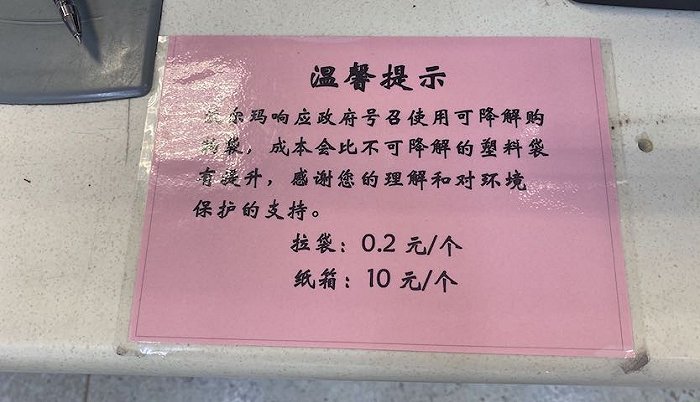 温馨提示
沃尔玛响应政府号召使用可降解购
物袋，成本会比不可降解的塑料袋
有提升，感谢您的理解和对环境
保护的支持。
拉袋：0.2 元/个
纸箱：10 元/个